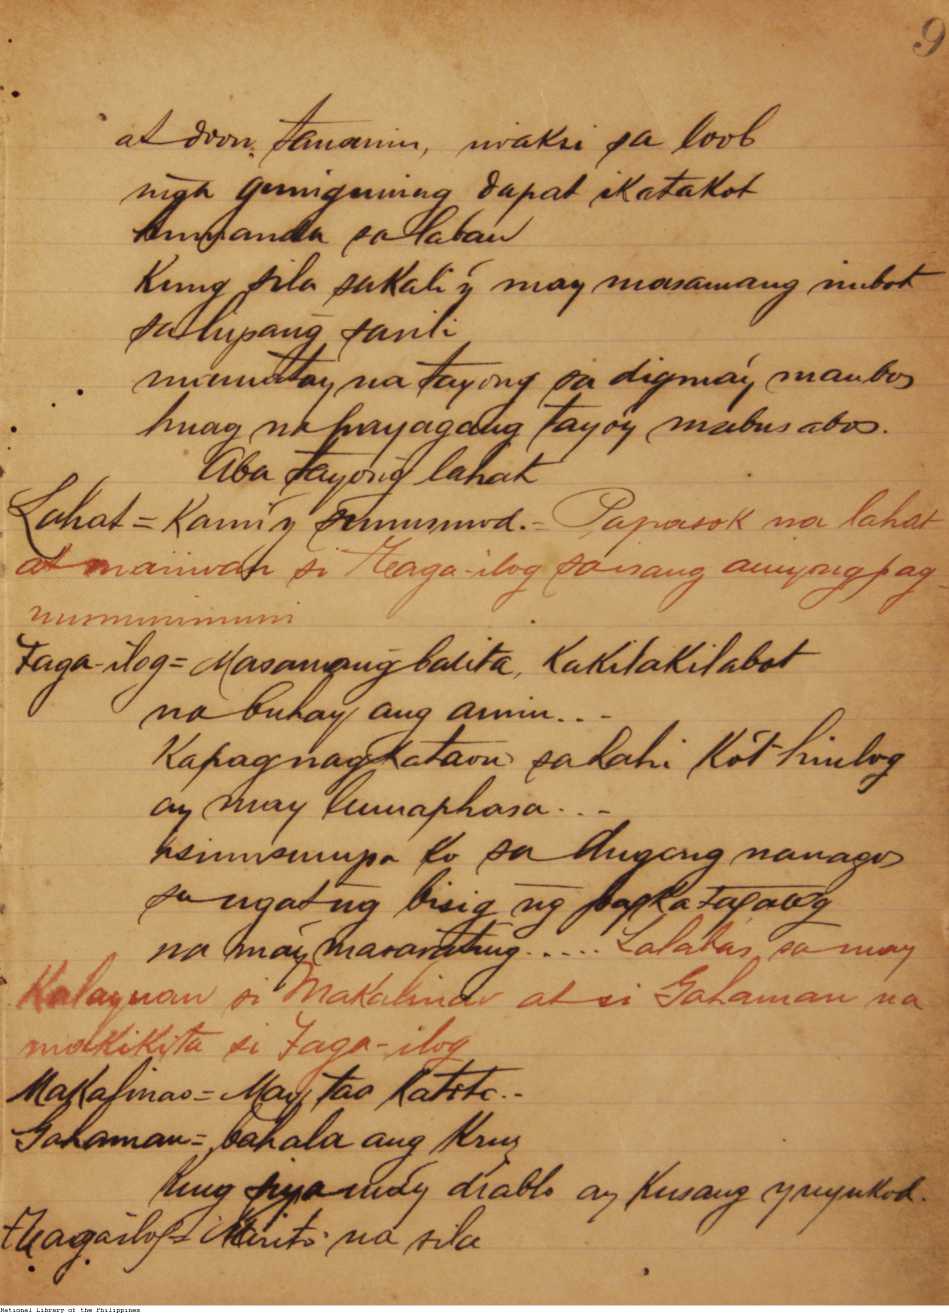 9
at doon tanawin, iwaksi sa loob
ñga guniguning dapat ikatakot
humanda sa laban
Kung sila sakali'y may masamang imbot
sa lupang sarili
mamatay na tayong sa digma'y maubos
huag na payagang tayo'y mabusabos.
Aba tayong lahat
Lahat = Kami'y sumusunod. = Papasok na lahat
at maiiwan si Taga-ilog sa isang anyong pag-
numuninuni
Taga-ilog = Masamang balita, Kakilakilabot
na buhay ang amin...-
Kapag nagkataon sa lahi Ko't hinlog
ay may lumaphasa...-
isinusumpa Ko sa dugong nanagos
sa ugat ng bisig ng pagka tagalog
na may masasating..... Lalabas sa may
Kalayuan si Makalinao at si Gahaman na
makikita si Taga-ilog
Makalinao = May tao Katoto..-
Gahaman = bahala ang Krus
Kung siya may diablo ay Kusang yuyukod.
Taga ilog = Narito na sila
National Library of the Philippines